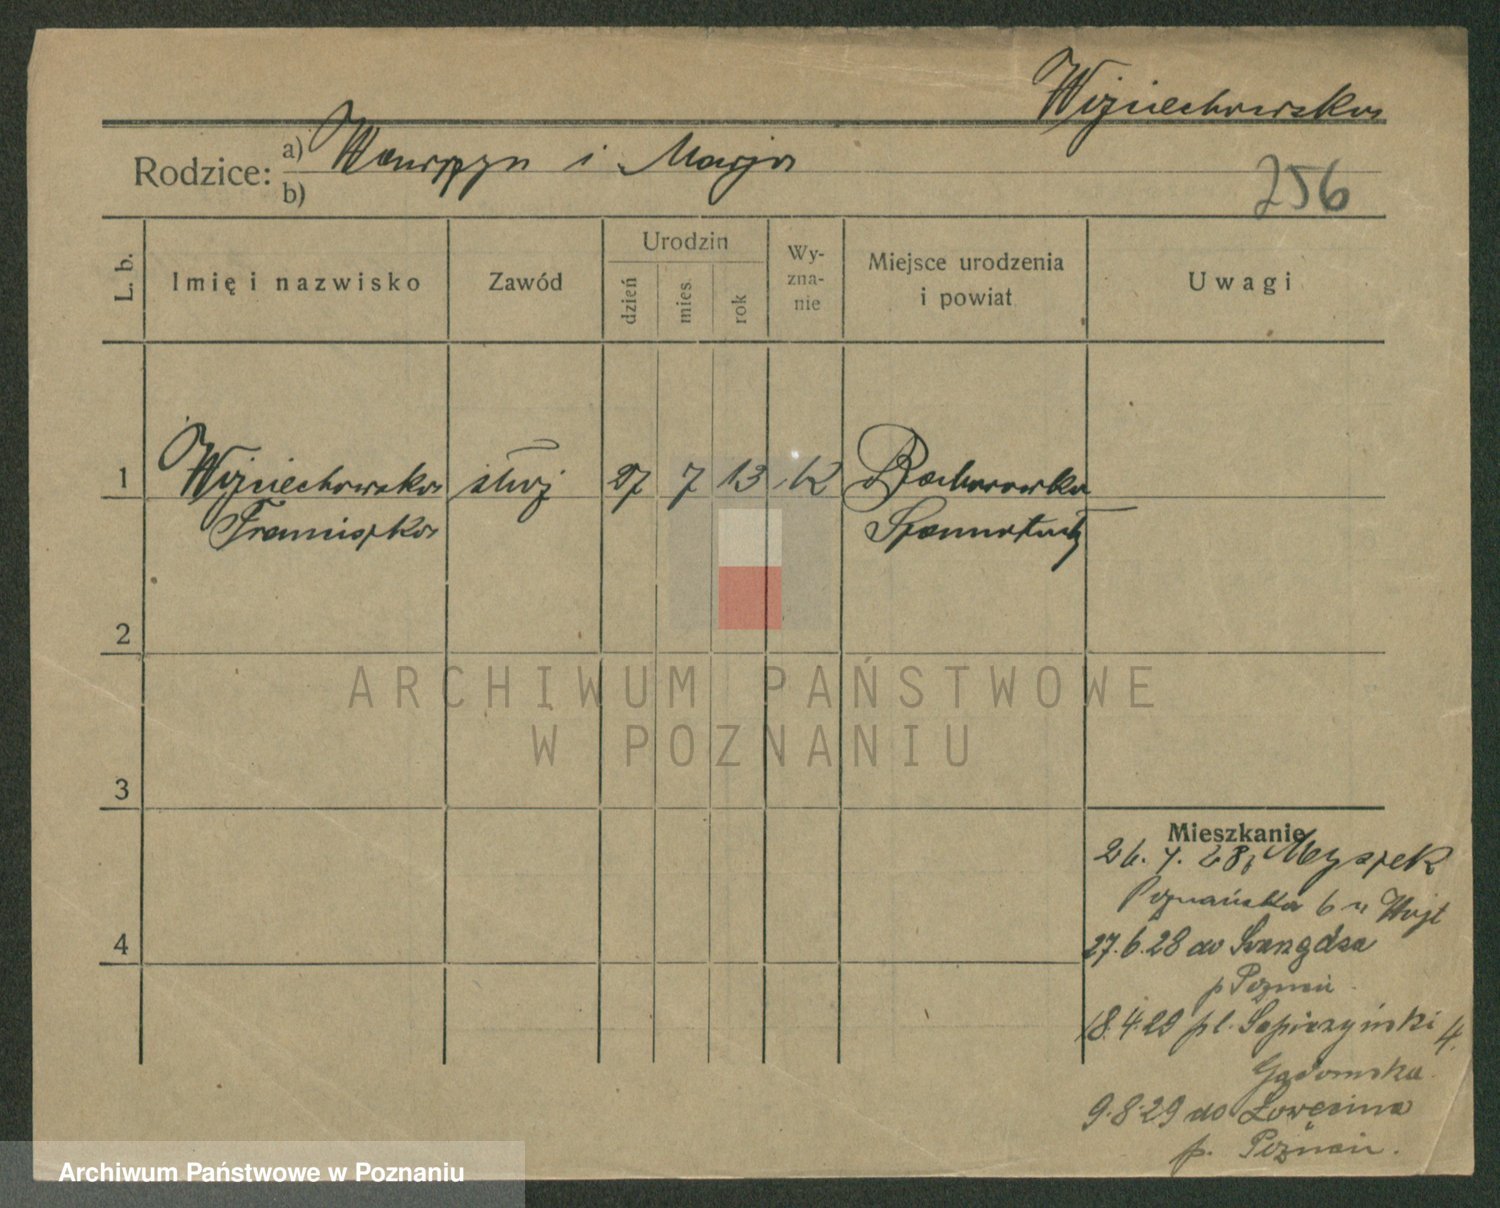 Wojciechowska
Rodzice: a) Wawrzyn i Marja
b)
256
L. b.
Imię i nazwisko
Zawód
Urodzin
dzień
mies.
rok
Wy-
zna-
nie
Miejsce urodzenia
i powiat
Uwagi
1 Wojciechowska służ 27 7 13 K
Franciszka
2
ARCHIWUM PAŃSTWOWE
W POZNANIU
3
4
Mieszkanie
Myszek
Poznańska 6 u Wojt
27.6.28 do
p Poznań
18.4.29 pl. Sapieżyński 4.
Gądomska
9.8.29 do Łowęcina
p. Poznań.
Archiwum Państwowe w Poznaniu